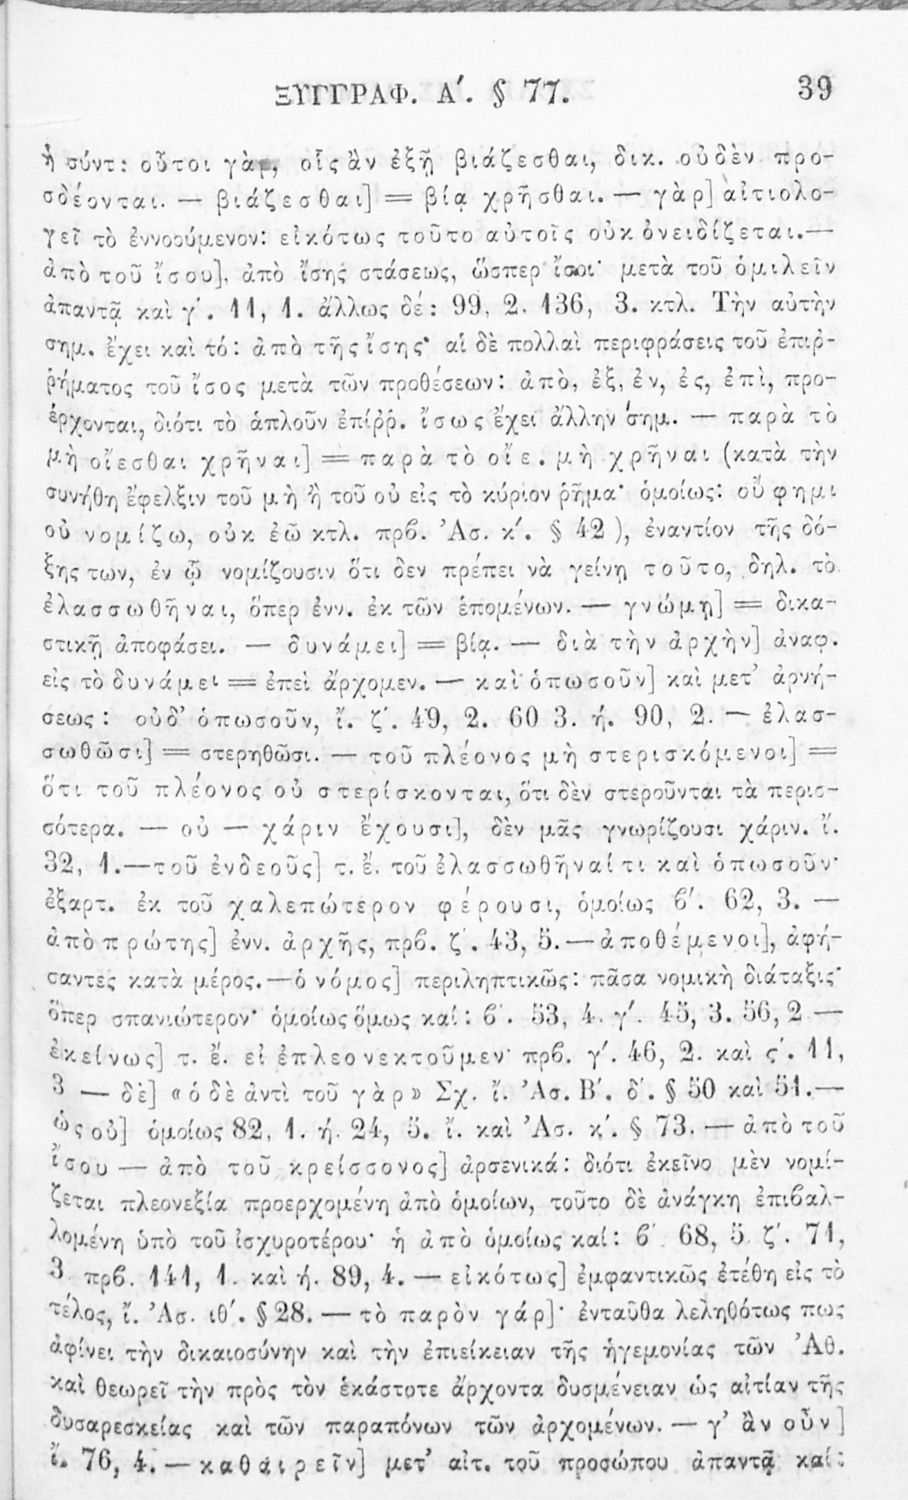 ΞΥΓΓΡΑΦ. Α΄. § 77. 39
ἡ σύντ: οὗτοι γὰρ, οἷς ἂν ἐξῇ βιάζεσθαι, δικ. οὐδὲν προ-
σδέονται. — βιάζεσθαι] = βίᾳ χρῆσθαι. — γὰρ] αἰτιολο-
γεῖ τὸ ἐννοούμενον: εἰκότως τοῦτο αὐτοῖς οὐκ ὀνειδίζεται.—
ἀπὸ τοῦ ἴσου], ἀπὸ ἴσης στάσεως, ὥσπερ ἴσοι· μετὰ τοῦ ὁμιλεῖν
ἀπαντᾷ καὶ γ΄. 11, 1. ἄλλως δέ: 99, 2. 136, 3. κτλ. Τὴν αὐτὴν
σημ. ἔχει καὶ τό: ἀπὸ τῆς ἴσης· αἱ δὲ πολλαὶ περιφράσεις τοῦ ἐπιρ-
ρήματος τοῦ ἴσος μετὰ τῶν προθέσεων: ἀπὸ, ἐξ, ἐν, ἐς, ἐπὶ, προ-
έρχονται, διότι τὸ ἁπλοῦν ἐπίῤῥ. ἴσως ἔχει ἄλλην σημ. — παρὰ τὸ
μὴ οἴεσθαι χρῆναι] = παρὰ τὸ οἴε. μὴ χρῆναι (κατὰ τὴν
συνήθη ἔφελξιν τοῦ μὴ ἢ τοῦ οὐ εἰς τὸ κύριον ῥῆμα· ὁμοίως: οὔ φημι
οὐ νομίζω, οὐκ ἐῶ κτλ. πρβ. Ἀσ. κ΄. § 42), ἐναντίον τῆς δό-
ξης των, ἐν ᾧ νομίζουσιν ὅτι δεν πρέπει νὰ γείνῃ τοῦτο, δηλ. τὸ
ἐλασσωθῆναι, ὅπερ ἐνν. ἐκ τῶν ἑπομένων. — γνώμῃ] = δικα-
στικῇ ἀποφάσει. — δυνάμει] = βίᾳ. — διὰ τὴν ἀρχὴν] ἀναφ.
εἰς τὸ δυνάμει = ἐπεὶ ἄρχομεν. — καὶ ὁπωσοῦν] καὶ μετ' ἀρνή-
σεως: οὐδ' ὁπωσοῦν, ἴ. ζ΄. 49, 2. 60 3. ή. 90, 2. — ἐλασ-
σωθῶσι] = στερηθῶσι. — τοῦ πλέονος μὴ στερισκόμενοι] =
ὅτι τοῦ πλέονος οὐ στερίσκονται, ὅτι δὲν στεροῦνται τὰ περισ-
σότερα. — οὐ — χάριν ἔχουσι], δὲν μᾶς γνωρίζουσι χάριν. ἴ.
32, 1.—τοῦ ἐνδεοῦς] τ. ἔ. τοῦ ἐλασσωθῆναί τι καὶ ὁπωσοῦν·
ἐξαρτ. ἐκ τοῦ χαλεπώτερον φέρουσι, ὁμοίως β΄. 62, 3. —
ἀπὸ πρώτης] ἐνν. ἀρχῆς, πρβ. ζ΄. 43, 5.—ἀποθέμενοι], ἀφή-
σαντες κατὰ μέρος.—ὁ νόμος] περιληπτικῶς: πᾶσα νομικὴ διάταξις·
ὅπερ σπανιώτερον· ὁμοίως ὅμως καί: β΄. 53, 4. γ΄. 45, 3. 56, 2 —
ἐκείνως] τ. ἔ. εἰ ἐπλεονεκτοῦμεν· πρβ. γ΄. 46, 2. καὶ ς΄. 11,
3 — δὲ] «ὁ δὲ ἀντὶ τοῦ γὰρ» Σχ. ἴ. Ἀσ. Β΄. δ΄. § 50 καὶ 51.—
ὡς οὐ] ὁμοίως 82, 1. ή. 24, 5. ἴ. καὶ Ἀσ. κ΄. § 73. — ἀπὸ τοῦ
ἴσου — ἀπὸ τοῦ κρείσσονος] ἀρσενικά: διότι ἐκεῖνο μὲν νομί-
ζεται πλεονεξία προερχομένη ἀπὸ ὁμοίων, τοῦτο δὲ ἀνάγκη ἐπιβαλ-
λομένη ὑπὸ τοῦ ἰσχυροτέρου· ἡ ἀπὸ ὁμοίως καί: β΄ 68, 5 ζ΄. 71,
3 πρβ. 141, 1. καὶ ή. 89, 4. — εἰκότως] ἐμφαντικῶς ἐτέθη εἰς τὸ
τέλος, ἴ. Ἀσ. ιθ΄. § 28. — τὸ παρὸν γάρ]· ἐνταῦθα λεληθότως πως
ἀφίνει τὴν δικαιοσύνην καὶ τὴν ἐπιείκειαν τῆς ἡγεμονίας τῶν Ἀθ.
καὶ θεωρεῖ τὴν πρὸς τὸν ἑκάστοτε ἄρχοντα δυσμένειαν ὡς αἰτίαν τῆς
δυσαρεσκείας καὶ τῶν παραπόνων τῶν ἀρχομένων. — γ' ἂν οὖν]
ἴ. 76, 4. — καθαιρεῖν] μετ' αἰτ. τοῦ προσώπου ἀπαντᾷ καί: